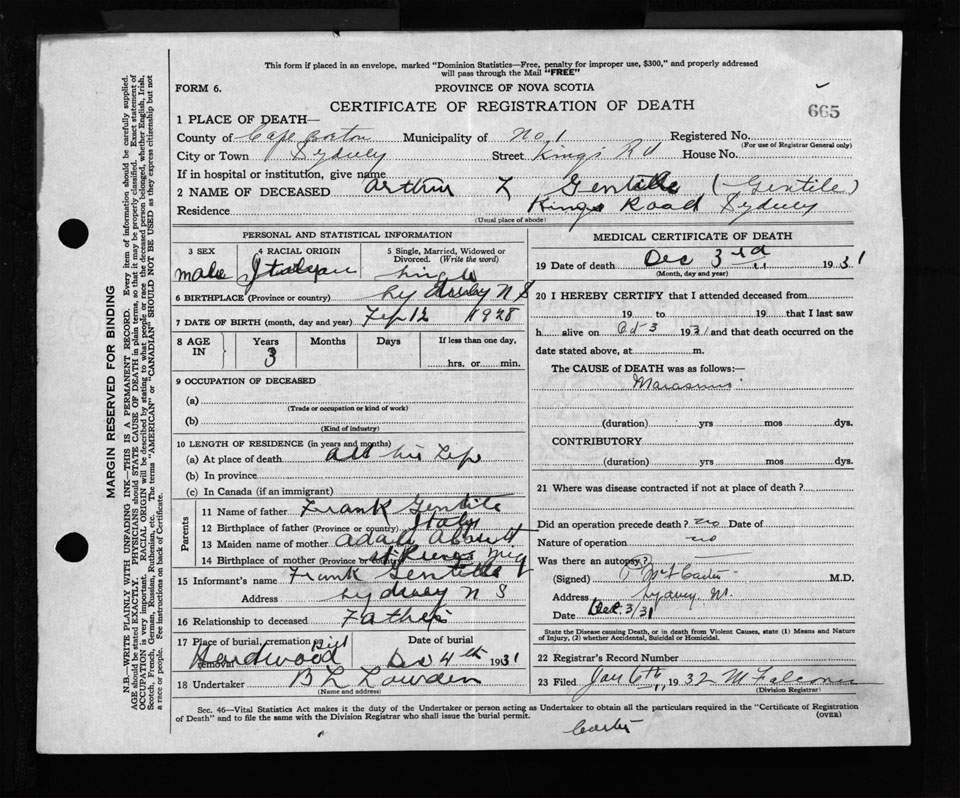 This form if placed in an envelope, marked "Dominion Statistics—Free, penalty for improper use, $300," and properly addressed
will pass through the Mail "FREE"
FORM 6.
PROVINCE OF NOVA SCOTIA
665
CERTIFICATE OF REGISTRATION OF DEATH
1 PLACE OF DEATH—
County of Cape Breton Municipality of No. 1 Registered No.
(For use of Registrar General only)
City or Town Sydney Street Kings Rd House No.
If in hospital or institution, give name
2 NAME OF DECEASED Arthur L Gentille (Gentile)
Residence Kings Road Sydney
(Usual place of abode)
PERSONAL AND STATISTICAL INFORMATION
3 SEX 4 RACIAL ORIGIN 5 Single, Married, Widowed or
Divorced. (Write the word)
male Italian single
6 BIRTHPLACE (Province or country) Sydney N S
7 DATE OF BIRTH (month, day and year) Feb 12 1928
8 AGE IN Years Months Days If less than one day,
3 hrs. or min.
9 OCCUPATION OF DECEASED
(a)
(Trade or occupation or kind of work)
(b)
(Kind of industry)
10 LENGTH OF RESIDENCE (in years and months)
(a) At place of death all his life
(b) In province
(c) In Canada (if an immigrant)
Parents
11 Name of father Frank Gentile
12 Birthplace of father (Province or country) Italy
13 Maiden name of mother
14 Birthplace of mother (Province or country) St
15 Informant's name Frank Gentille
Address Sydney N S
16 Relationship to deceased Father
17 Place of burial, cremation or removal Hardwood Hill Date of burial Dec 4th 1931
18 Undertaker B L Lowden
(Name and address)
MEDICAL CERTIFICATE OF DEATH
19 Date of death Dec 3rd 1931
(Month, day and year)
20 I HEREBY CERTIFY that I attended deceased from
19 to 19 that I last saw
h alive on 3 1931 and that death occurred on the
date stated above, at m.
The CAUSE of DEATH was as follows:—
Marasmus
(duration) yrs mos dys.
CONTRIBUTORY
(duration) yrs mos dys.
21 Where was disease contracted if not at place of death?
Did an operation precede death? no Date of
Nature of operation no
Was there an autopsy?
(Signed) M.D.
Address Sydney
Date Dec. 3/31
State the Disease causing Death, or in death from Violent Causes, state (1) Means and Nature
of Injury, (2) whether Accidental, Suicidal or Homicidal.
22 Registrar's Record Number
23 Filed Jan 6th 1932
(Division Registrar)
Sec. 46—Vital Statistics Act makes it the duty of the Undertaker or person acting as Undertaker to obtain all the particulars required in the "Certificate of Registration
of Death" and to file the same with the Division Registrar who shall issue the burial permit. (OVER)
MARGIN RESERVED FOR BINDING
N.B.—WRITE PLAINLY WITH UNFADING INK—THIS IS A PERMANENT RECORD. Every item of information should be carefully supplied.
AGE should be stated EXACTLY. PHYSICIANS should STATE CAUSE OF DEATH in plain terms, so that it may be properly classified. Exact statement of
OCCUPATION is very important. RACIAL ORIGIN will be described by stating to what people or race the deceased person belonged, whether English, Irish,
Scotch, French, German, Russian, Ruthenian, etc. The terms "AMERICAN" or "CANADIAN" SHOULD NOT BE USED as they express citizenship but not
a race or people. See instructions on back of Certificate.